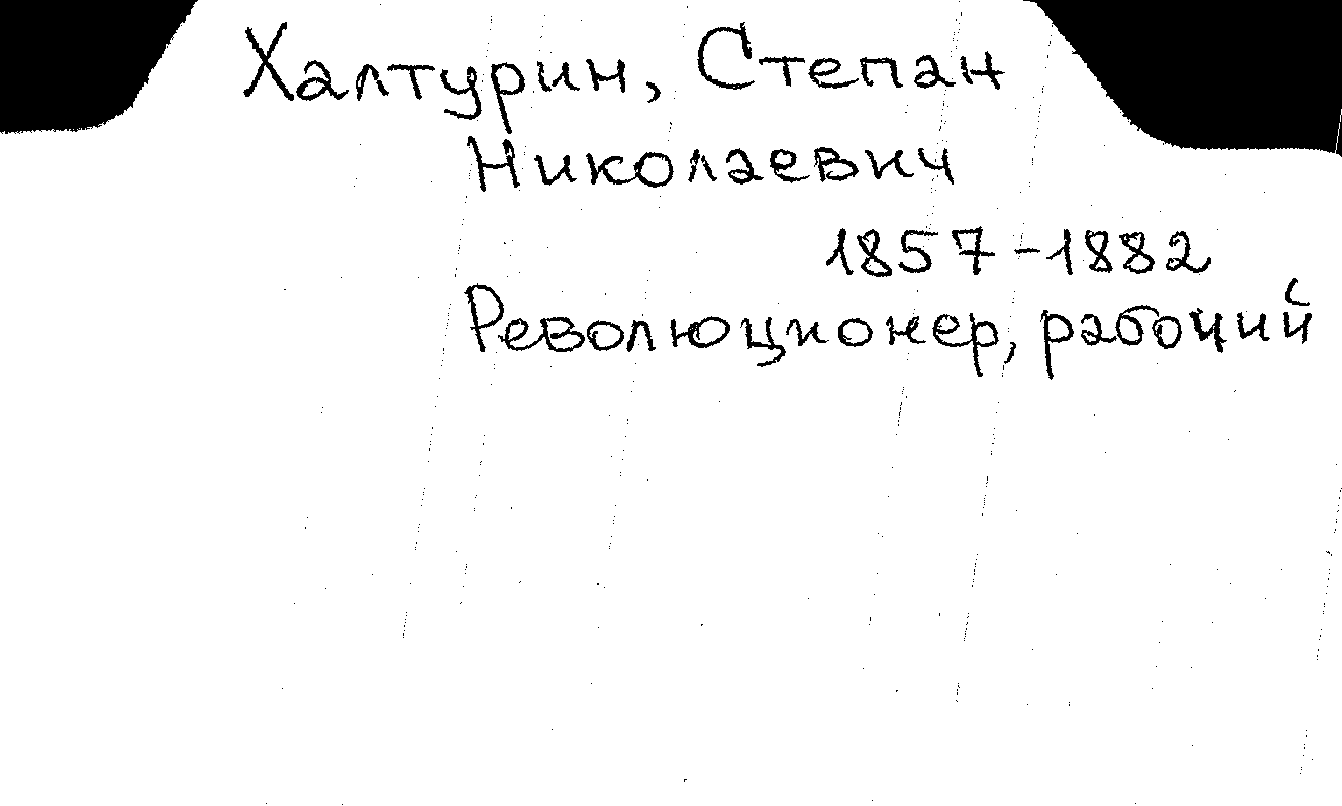 Халтурин, Степан
Николаевич
1857-1882
Революционер, рабочий